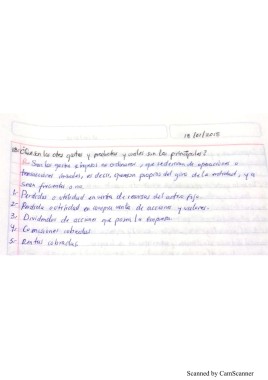 18/01/2018
¿Cuáles son los otros gastos y productos y cuáles son los principales?
R= Son los gastos e ingresos no ordinarios, que se derivan de operaciones o
transacciones inusuales, es decir, que no son propios del giro de la entidad, ya
sean frecuentes o no.
1.- Pérdidas o utilidad en venta de recursos del activo fijo.
2.- Perdida o utilidad en compra venta de acciones y valores.
3.- Dividendos de acciones que posea la empresa.
4.- Comisiones cobradas
5.- Rentas cobradas
Scanned by CamScanner